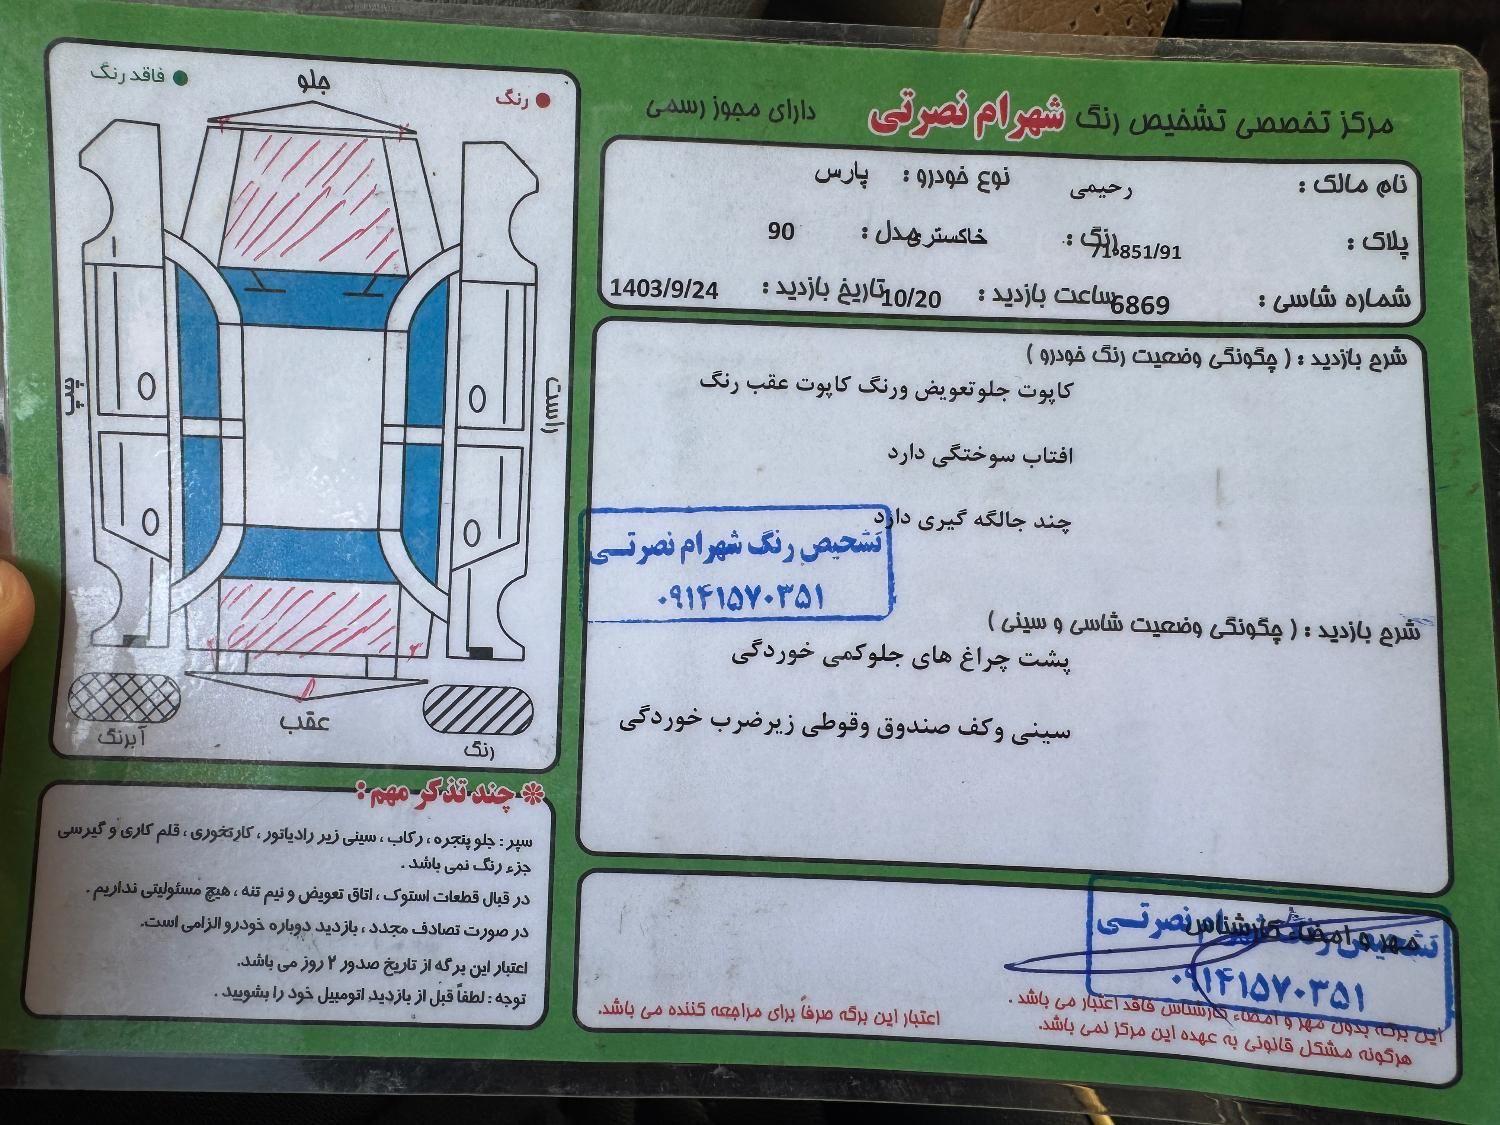 مرکز تخصصی تشخیص رنگ شهرام نصرتی دارای مجوز رسمی
نام مالک : رحیمی نوع خودرو : پارس
پلاک : 851/91 رنگ : خاکستری مدل : 90
شماره شاسی : 6869 ساعت بازدید : 10/20 تاریخ بازدید : 1403/9/24
شرح بازدید : ( چگونگی وضعیت رنگ خودرو )
کاپوت جلوتعویض ورنگ کاپوت عقب رنگ
افتاب سوختگی دارد
چند جالگه گیری دارد
تشخیص رنگ شهرام نصرتی
۰۹۱۴۱۵۷۰۳۵۱
شرح بازدید : ( چگونگی وضعیت شاسی و سینی )
پشت چراغ های جلوکمی خوردگی
سینی وکف صندوق وقوطی زیرضرب خوردگی
مهر و امضاء کارشناس
تشخیص رنگ شهرام نصرتی
۰۹۱۴۱۵۷۰۳۵۱
این برگه بدون مهر و امضاء کارشناس فاقد اعتبار می باشد .
هرگونه مشکل قانونی به عهده این مرکز نمی باشد.
اعتبار این برگه صرفاً برای مراجعه کننده می باشد.
رنگ
فاقد رنگ
جلو
راست
چپ
عقب
رنگ
آبرنگ
چند تذکر مهم :
سپر : جلو پنجره ، رکاب ، سینی زیر رادیاتور ، کارتخوری ، قلم کاری و گیرسی
جزء رنگ نمی باشد .
در قبال قطعات استوک ، اتاق تعویض و نیم تنه ، هیچ مسئولیتی نداریم .
در صورت تصادف مجدد ، بازدید دوباره خودرو الزامی است.
اعتبار این برگه از تاریخ صدور ۲ روز می باشد.
توجه : لطفاً قبل از بازدید اتومبیل خود را بشویید .